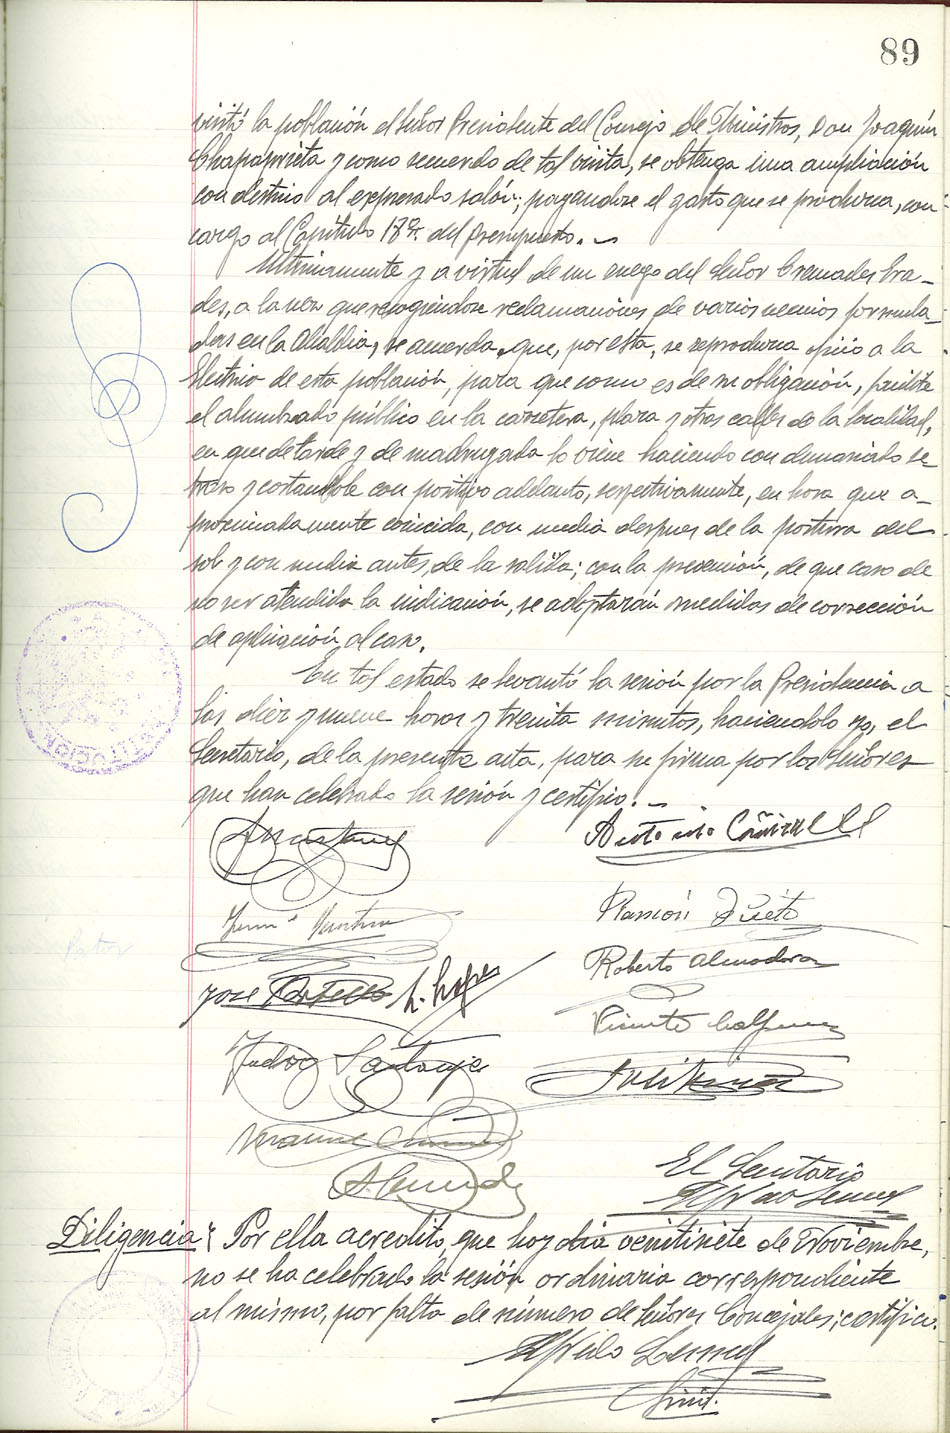 89
visitó la población el señor Presidente del Consejo de Ministros, Don Joaquín
Chapaprieta y como recuerdo de tal visita, se obtenga una ampliación
con destino al expresado salón; pagandose el gasto que se produzca, con
cargo al Capítulo 18º. del presupuesto.
Ultimamente y a virtud de un ruego del señor Cremades Pra-
des, a la vez que recogiendose reclamaciones de varios vecinos formula-
das en la Alcaldia, se acuerda, que, por esta, se reproduzca oficio a la
Electrica de esta población, para que como es de su obligación, facilite
el alumbrado público en la carretera, plaza y otras calles de la localidad,
en que de tarde y de madrugada lo viene haciendo con demasiado re-
traso y cortandole con positivo adelanto, respectivamente, en hora que a-
proximadamente coincida, con media despues de la postura del
sol y con media antes de la salida; con la prevención, de que caso de
no ser atendida la indicación, se adoptarán medidas de corrección
de aplicación al caso.
En tal estado se levantó la sesión por la Presidencia a
las diez y nueve horas y treinta minutos, haciendolo yo, el
Secretario, de la presente acta, para su firma por los Señores
que han celebrado la sesión y certifico.
Antonio Cañizal
Ramón
Roberto Almodovar
José L. Lopez
Vicente
El Secretario
Diligencia: Por ella acredito, que hoy dia veintisiete de Noviembre,
no se ha celebrado la sesión ordinaria correspondiente
al mismo, por falta de número de Señores Concejales; certifico.
Alfredo